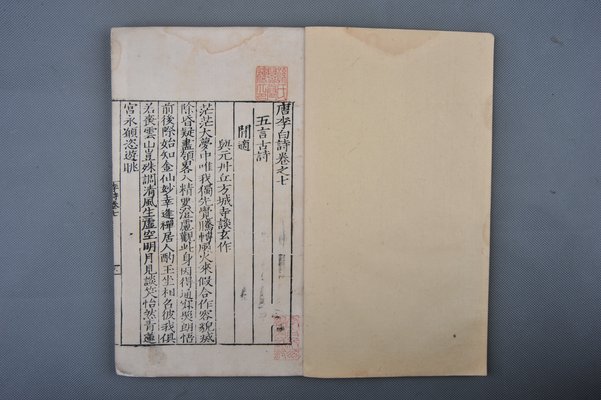 唐李白詩卷之七
五言古詩
閒適
與元丹丘方城寺談玄作
茫茫大夢中唯我獨先覺騰轉風火來假合作容貌滅
除昏疑盡領畧入精要澄慮觀此身因得通寂照朗悟
前後際始知金仙妙幸逢禪居人酌玉坐相召彼我俱
若喪雲山豈殊調清風生虛空明月見談笑怡然青蓮
宮永願恣遊眺